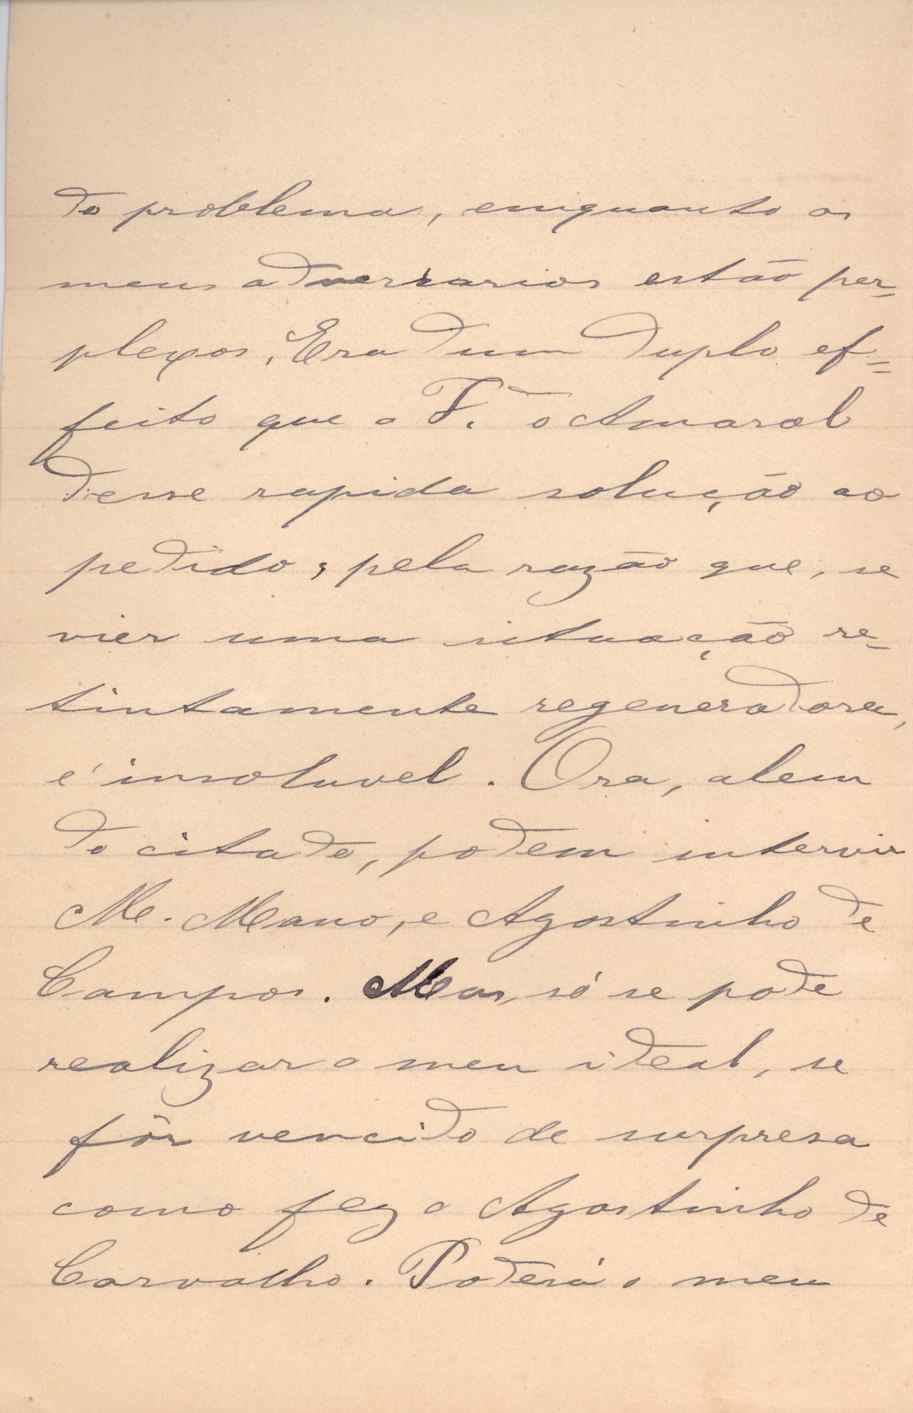 do problema, emquanto os
meus adversarios estão per-
plexos. Era dum duplo ef-
feito que o F.ão Amaral
desse rapida solução ao
pedido, pela razão que, se
vier uma situação re-
tintamente regeneradora,
é insoluvel. Ora, alem
do citado, podem intervir
M. Mano, e Agostinho de
Campos. Mas, só se pode
realizar o meu ideal, se
fôr vencido de surpresa
como fez o Agostinho de
Carvalho. Poderá o meu